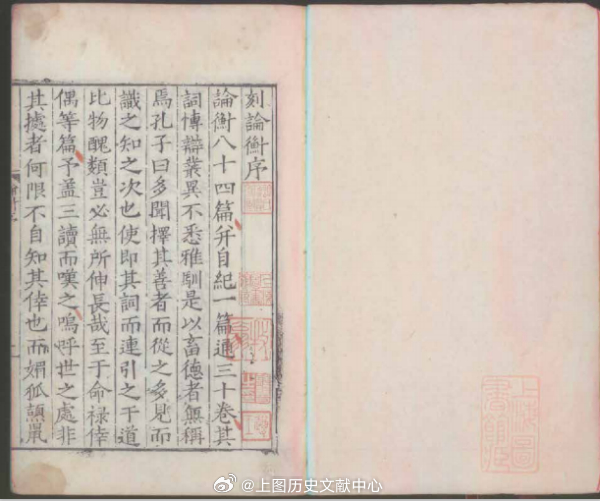 刻論衡序
論衡八十四篇并自紀一篇通三十卷其
詞博辯叢異不悉雅馴是以畜德者無稱
焉孔子曰多聞擇其善者而從之多見而
識之知之次也使即其詞而連引之于道
比物醜類豈必無所伸長哉至于命禄倖
偶等篇予盖三讀而嘆之嗚呼世之處非
其據者何限不自知其倖也而媚狐顗鼠
上海圖
書館藏
@上图历史文献中心